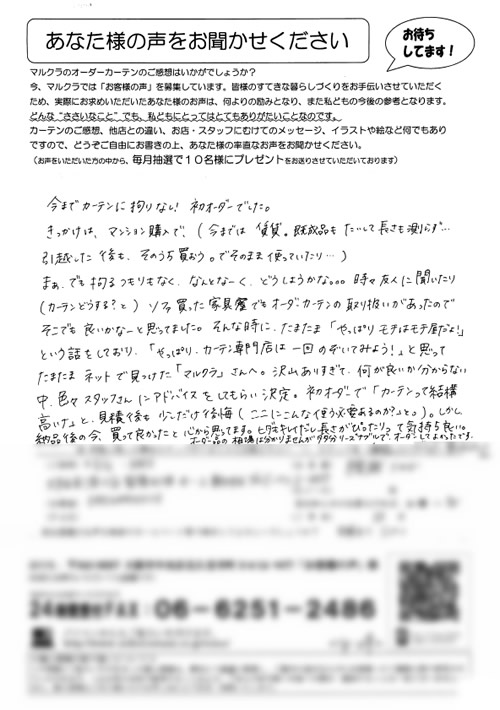 あなた様の声をお聞かせください
お待ち
してます!
マルクラのオーダーカーテンのご感想はいかがでしょうか?
今、マルクラでは「お客様の声」を募集しています。皆様のすてきな暮らしづくりをお手伝いさせていただく
ため、実際にお求めいただいたあなた様のお声は、何よりの励みとなり、また私どもの今後の参考となります。
どんな“ささいなこと”でも、私どもにとってはとてもありがたいことなのです。
カーテンのご感想、他店との違い、お店・スタッフにむけてのメッセージ、イラストや絵など何でもあり
ですので、どうぞご自由にお書きの上、あなた様の率直なお声をお聞かせください。
(お声をいただいた方の中から、毎月抽選で10名様にプレゼントをお送りさせていただいております)
今までカーテンに拘りなし! 初オーダーでした。
きっかけは、マンション購入で、(今までは 賃貸。既成品も たいして長さも測らず…
引越した後も、そのうち買おう。でそのまま使っていたり…)
まぁ、でも拘るつもりもなく、なんとなーく、どうしようかな。。。時々友人に聞いたり
(カーテンどうする?と) ソファ買った家具屋でもオーダーカーテンの取り扱いがあったので
そこでも良いかなーと思ってました。そんな時に、たまたま「やっぱりモチはモチ屋だよ!」
という話をしており、「やっぱり、カーテン専門店は一回のぞいてみよう!」と思って
たまたま ネットで見つけた「マルクラ」さんへ。沢山ありすぎて、何が良いか分からない
中、色々スタッフさんにアドバイスをしてもらい決定。初オーダーで「カーテンって結構
高い」と、見積後も少しだけ後悔(ここにこんな使う必要あるのか?と。)。しかし、
納品後の今、買って良かったと心から思ってます。ヒダもキレイだし長さがぴったりって気持ち良い。
オーダー品の相場は分かりませんが多分リーズナブルで、オーダーしてよかったです。
24 FAX:06-6251-2486